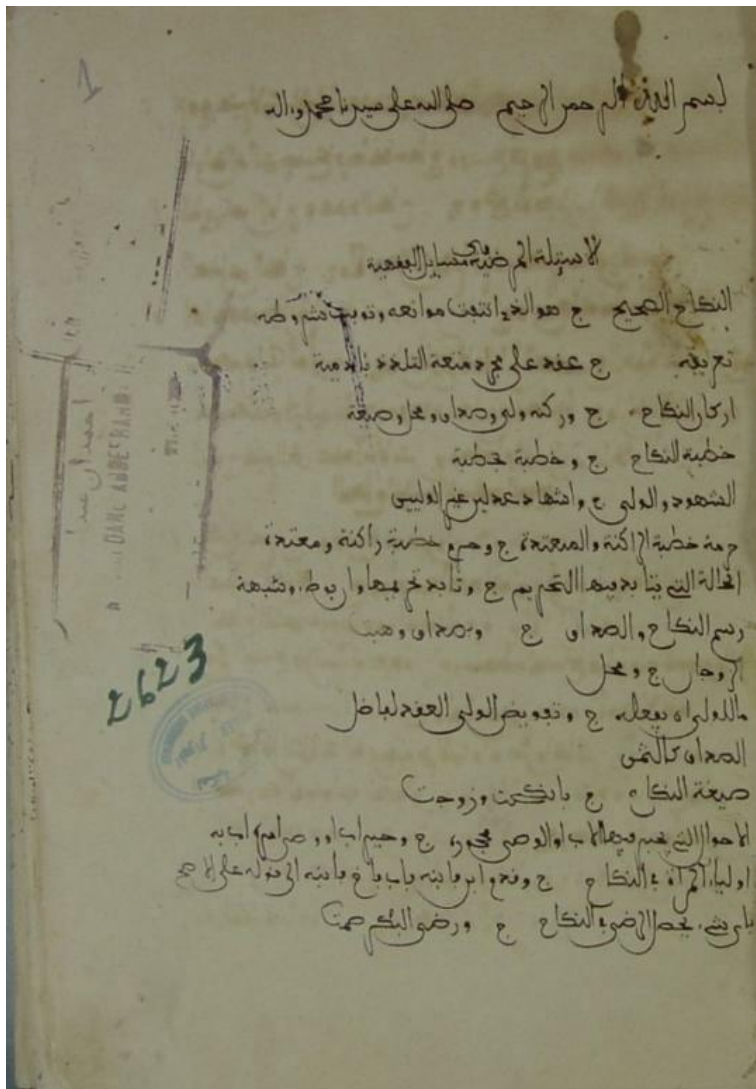 1
بسم الله الرحمن الرحيم صلى الله على سيدنا محمد وءاله
الاسئلة المرضية في مسايل الفقهية
النكاح الصحيح ج هو الذي انتفت موانعه وتوبرت شروطه
تعريفه ج عقد على مجرد متعة التلذذ بادمية
اركان النكاح ج وركنه ولي وصداق ومحل وصيغة
خطبة النكاح ج وخطبة بخطبة
الشهود والولي ج واشهاد عدلين غير الوليين
حرمة خطبة الراكنة والمعتدة ج وحرم خطبة راكنة ومعتدة
الحالة التي يتابد فيها التحريم ج وتابد تحريمها وان بوطء وشبهة
رسم النكاح والصداق ج وبصداق وهبت
الزوجان ج ومحل
ماللولي ان يفعله ج وتفويض الولي العقد لفاضل
الصداق كالثمن
صيغة النكاح ج بانكحت وزوجت
الاحوال التي يجبر فيها الاب او الوصي محجوره ج وجبر اب او وصي امره اب به
اولياء المراة في النكاح ج وقدم ابن فابنه باب فاخ فابنه الى قوله على الاصح
باي شيء يحصل الرضى في النكاح ج ورضى البكر صمت
احمدان عبد
DARI ABDERRAHM
2623